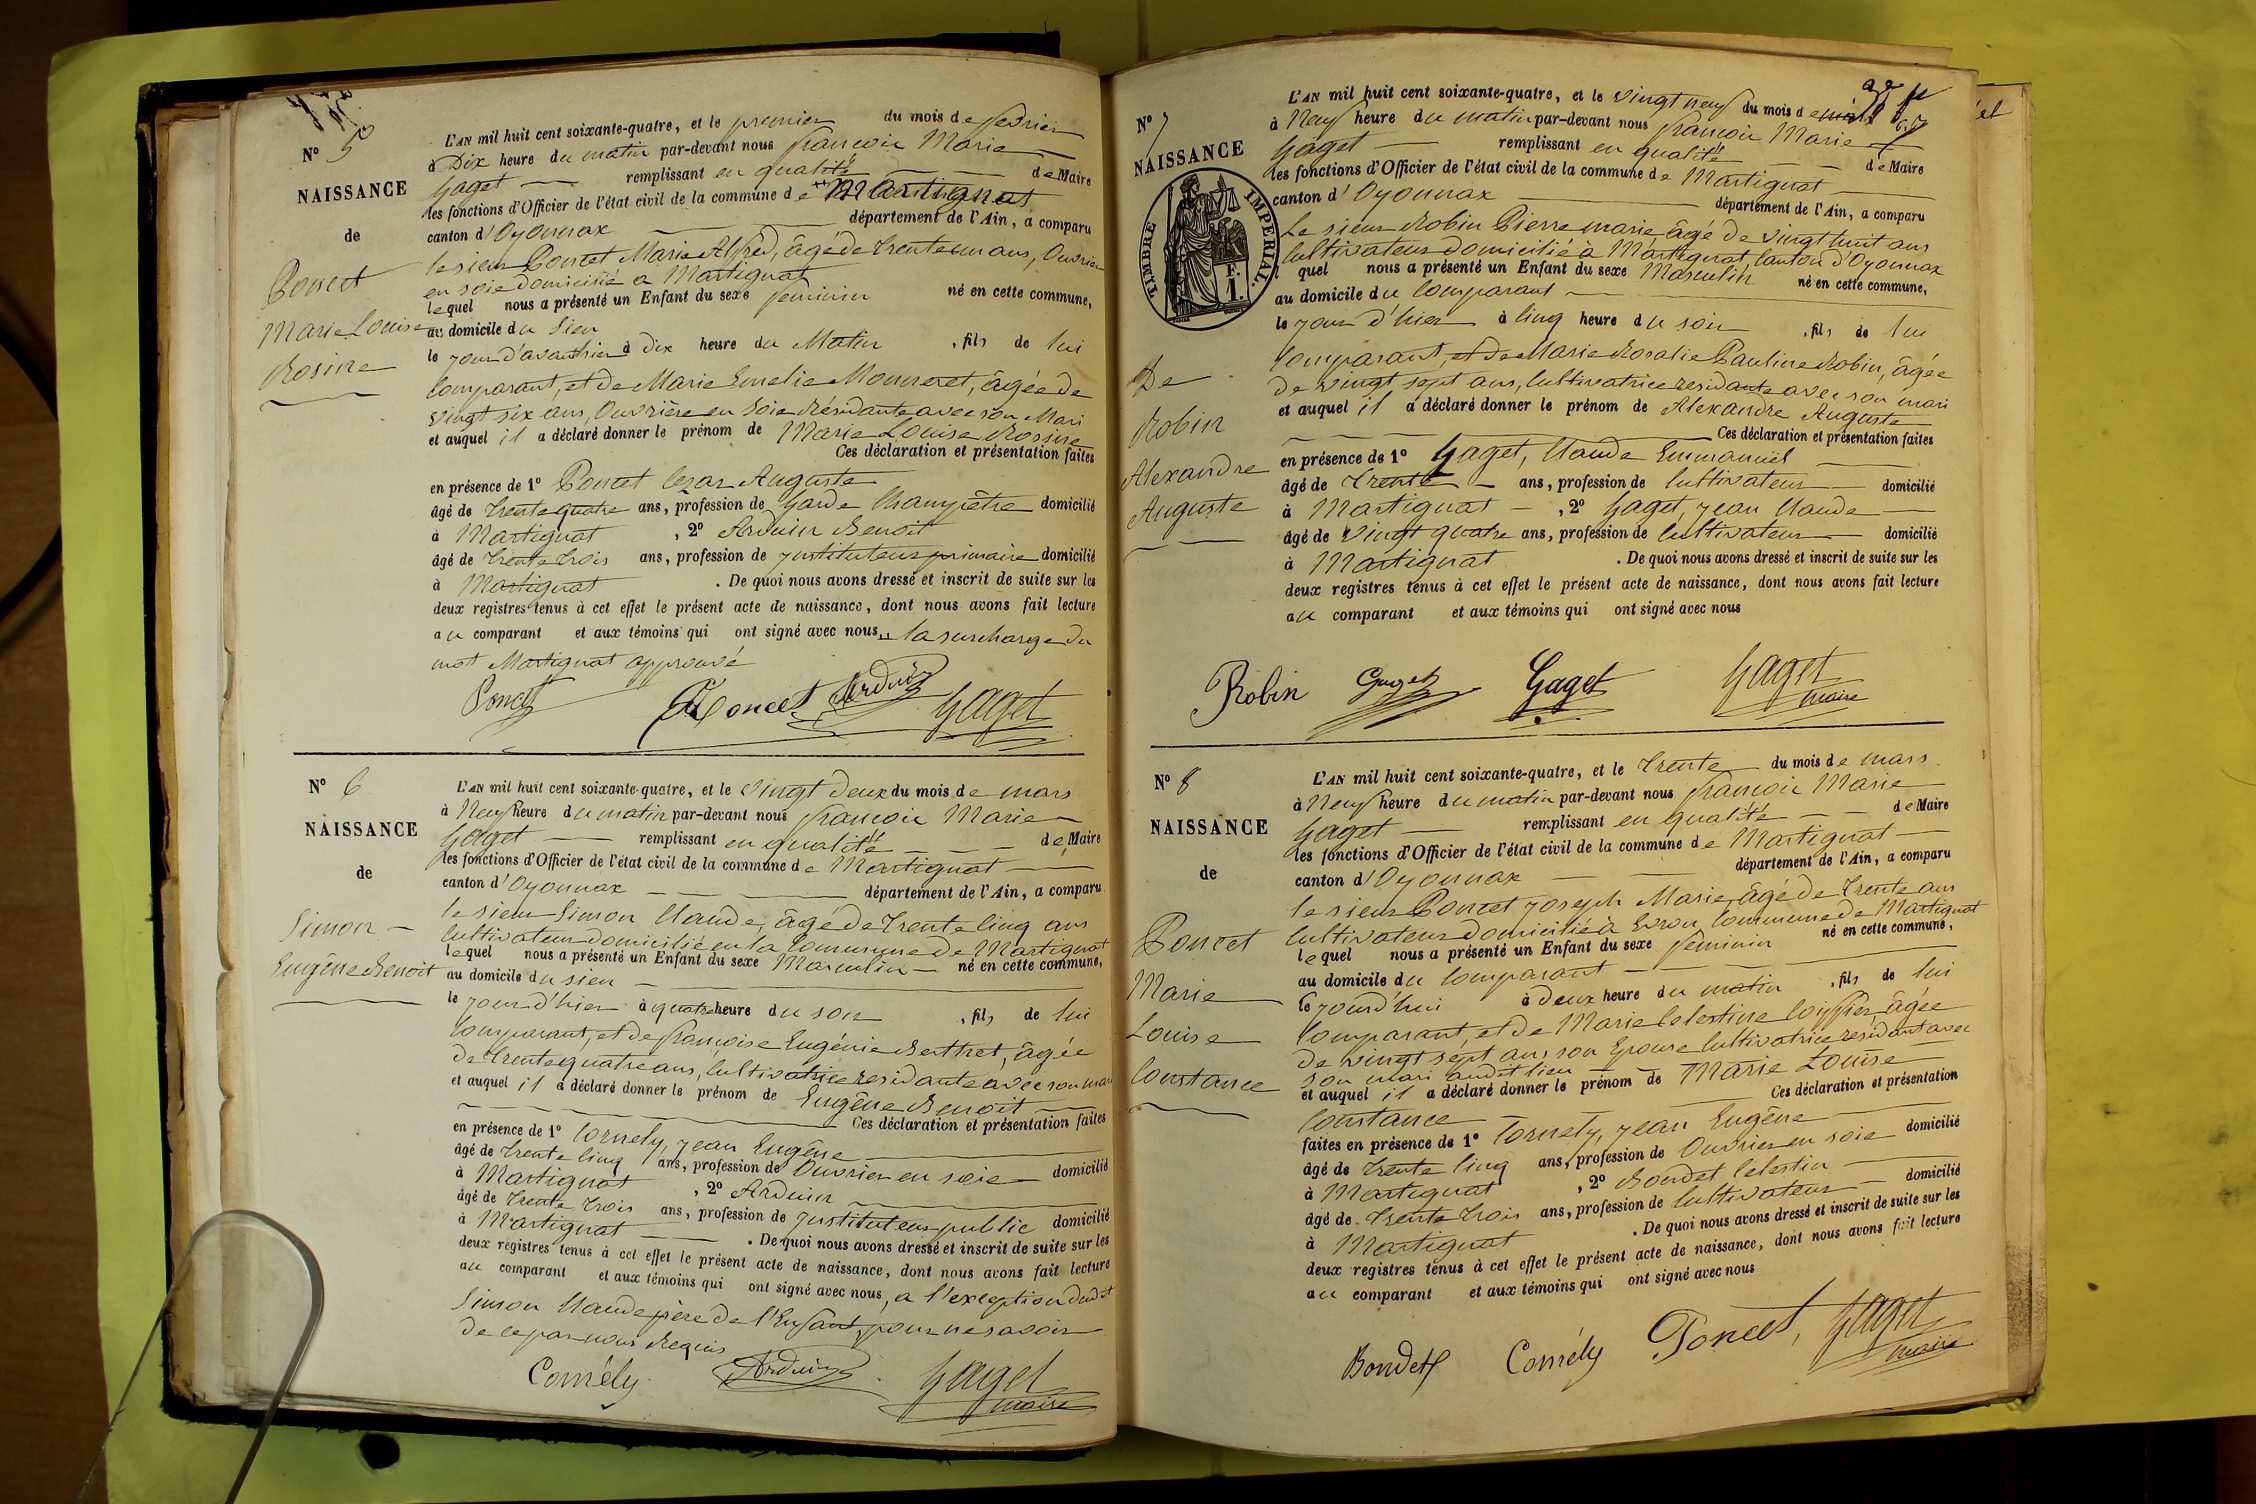 Nº 5
NAISSANCE
de
Poncet
Marie Louise
Rosine
L'AN mil huit cent soixante-quatre, et le premier du mois de février
à Dix heure du matin par-devant nous françois Marie
Gaget remplissant en qualité de Maire
les fonctions d'Officier de l'état civil de la commune de Martignat
canton d'Oyonnax département de l'Ain, a comparu
le sieur Poncet Marie Alfred, âgé de trente un ans, Ouvrier
en soie domicilié a Martignat
lequel nous a présenté un Enfant du sexe feminin né en cette commune,
au domicile du sien
le jour d'avanthier à dix heure du Matin , fils de lui
Comparant, et de Marie Emelie Monneret, âgée de
vingt six ans, Ouvrière en Soie Résidante avec son Mari
et auquel il a déclaré donner le prénom de Marie Louise Rosine
Ces déclaration et présentation faites
en présence de 1º Poncet Cezar Auguste
âgé de trente quatre ans, profession de Garde Champêtre domicilié
à Martignat , 2º Arduin Benoit
âgé de trente trois ans, profession de jnstituteur primaire domicilié
à Martignat . De quoi nous avons dressé et inscrit de suite sur les
deux registres tenus à cet effet le présent acte de naissance, dont nous avons fait lecture
au comparant et aux témoins qui ont signé avec nous,, la surcharge du
mot Martignat approuvé
Poncet Poncet Arduin Gaget
Nº 6
NAISSANCE
de
Simon
Eugêne Benoit
L'AN mil huit cent soixante-quatre, et le vingt deux du mois de mars
à Neuf heure du matin par-devant nous françois Marie
Gaget remplissant en qualité de Maire
les fonctions d'Officier de l'état civil de la commune de Martignat
canton d'Oyonnax département de l'Ain, a comparu
le sieur Simon Claude, âgé de trente cinq ans
Cultivateur domicilié en la Commune de Martignat
lequel nous a présenté un Enfant du sexe Masculin né en cette commune,
au domicile du sien
le jour d'hier à quatre heure du soir , fils de lui
Comparant, et de françoise Eugénie Berthet, âgée
de trente quatre ans, Cultivatrice residante avec son mari
et auquel il a déclaré donner le prénom de Eugêne Benoit
Ces déclaration et présentation faites
en présence de 1º Cornely, jean Eugêne
âgé de trente cinq ans, profession de Ouvrier en soie domicilié
à Martignat , 2º Arduin
âgé de trente trois ans, profession de jnstituteur public domicilié
à Martignat . De quoi nous avons dressé et inscrit de suite sur les
deux registres tenus à cet effet le présent acte de naissance, dont nous avons fait lecture
au comparant et aux témoins qui ont signé avec nous, a l'exception dudit
Simon Claude père de l'Enfant, pour ne savoir
de ce par nous Requis
Cornély Arduin Gaget
maire
Nº 7
NAISSANCE
TIMBRE IMPERIAL.
De
Robin
Alexandre
Auguste
L'AN mil huit cent soixante-quatre, et le vingt neuf du mois de mars
à Neuf heure du matin par-devant nous françois Marie
Gaget remplissant en qualité de Maire
les fonctions d'Officier de l'état civil de la commune de Martignat
canton d'Oyonnax département de l'Ain, a comparu
Le sieur Robin Pierre marie, âgé de vingt huit ans
Cultivateur domicilié à Martignat, Canton d'Oyonnax
quel nous a présenté un Enfant du sexe Masculin né en cette commune,
au domicile du Comparant
le jour d'hier à cinq heure du soir , fils de lui
Comparant, et de Marie Rosalie Pauline Robin, âgée
de vingt sept ans, Cultivatrice residante avec son mari
et auquel il a déclaré donner le prénom de Alexandre Auguste
Ces déclaration et présentation faites
en présence de 1º Gaget, Claude Emmanuel
âgé de trente ans, profession de Cultivateur domicilié
à Martignat , 2º Gaget, jean Claude
âgé de vingt quatre ans, profession de Cultivateur domicilié
à Martignat . De quoi nous avons dressé et inscrit de suite sur les
deux registres tenus à cet effet le présent acte de naissance, dont nous avons fait lecture
au comparant et aux témoins qui ont signé avec nous
Robin Gaget Gaget Gaget
maire
Nº 8
NAISSANCE
de
Poncet
Marie
Louise
Constance
L'AN mil huit cent soixante-quatre, et le trente du mois de mars
à Neuf heure du matin par-devant nous françois Marie
Gaget remplissant en qualité de Maire
les fonctions d'Officier de l'état civil de la commune de Martignat
canton d'Oyonnax département de l'Ain, a comparu
le sieur Poncet joseph Marie, âgé de trente ans
Cultivateur domicilié à Evron, Commune de Martignat
lequel nous a présenté un Enfant du sexe feminin né en cette commune,
au domicile du Comparant
le jourd'hui à deux heure du matin , fils de lui
Comparant, et de Marie Celestine Coiffier, âgée
de vingt sept ans son Epouse Cultivatrice résidant avec
son mari audit lieu
et auquel il a déclaré donner le prénom de Marie Louise
Constance Ces déclaration et présentation
faites en présence de 1º Cornely, jean Eugêne
âgé de trente cinq ans, profession de Ouvrier en soie domicilié
à Martignat , 2º Bondet Celestin
âgé de trente trois ans, profession de Cultivateur domicilié
à Martignat . De quoi nous avons dressé et inscrit de suite sur les
deux registres tenus à cet effet le présent acte de naissance, dont nous avons fait lecture
au comparant et aux témoins qui ont signé avec nous
Bondet Cornély Poncet, Gaget
maire